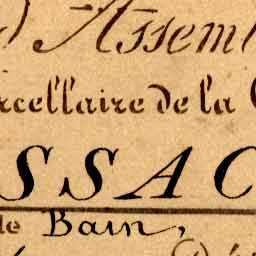 d'Assem
rcellaire de la C
SSAC
de Bain,